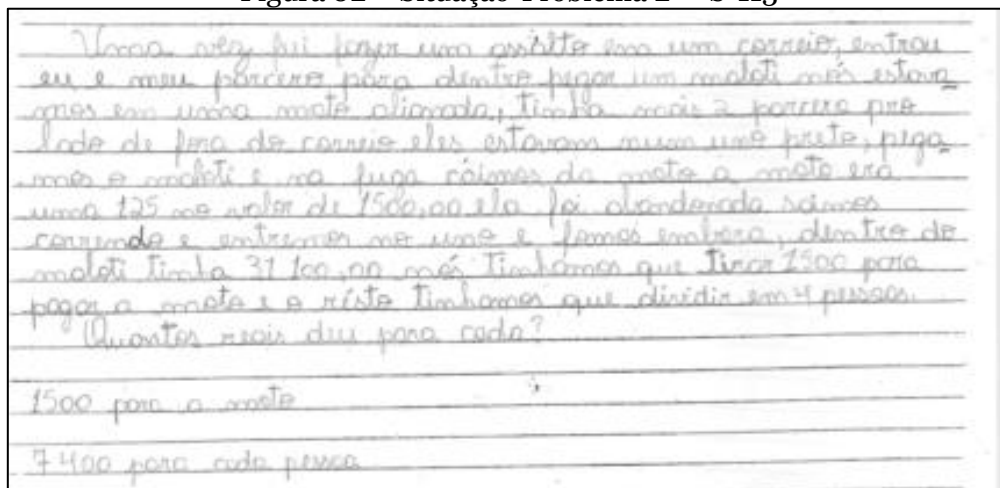 Uma vez fui fazer um assalto em um correio, entrou
eu e meu parcero para dentro pegar um maloti nós estava_
mos em uma moto alionada, tinha mais 2 parcero pro
lado de fora do correio eles estavam num uno preto, pega_
mos o maloti e na fuga caimos da moto a moto era
uma 125 no valor de 1500,00 ela foi abandonada saimos
correndo e entremos no uno e fomos embora, dentro do
maloti tinha 31 100,00 nós tinhamos que tirar 1500 para
pagar a moto e o résto tinhamos que dividir em 4 pessoas.
Quantos reais deu para cada?
1500 para a moto
7400 para cada pessoa